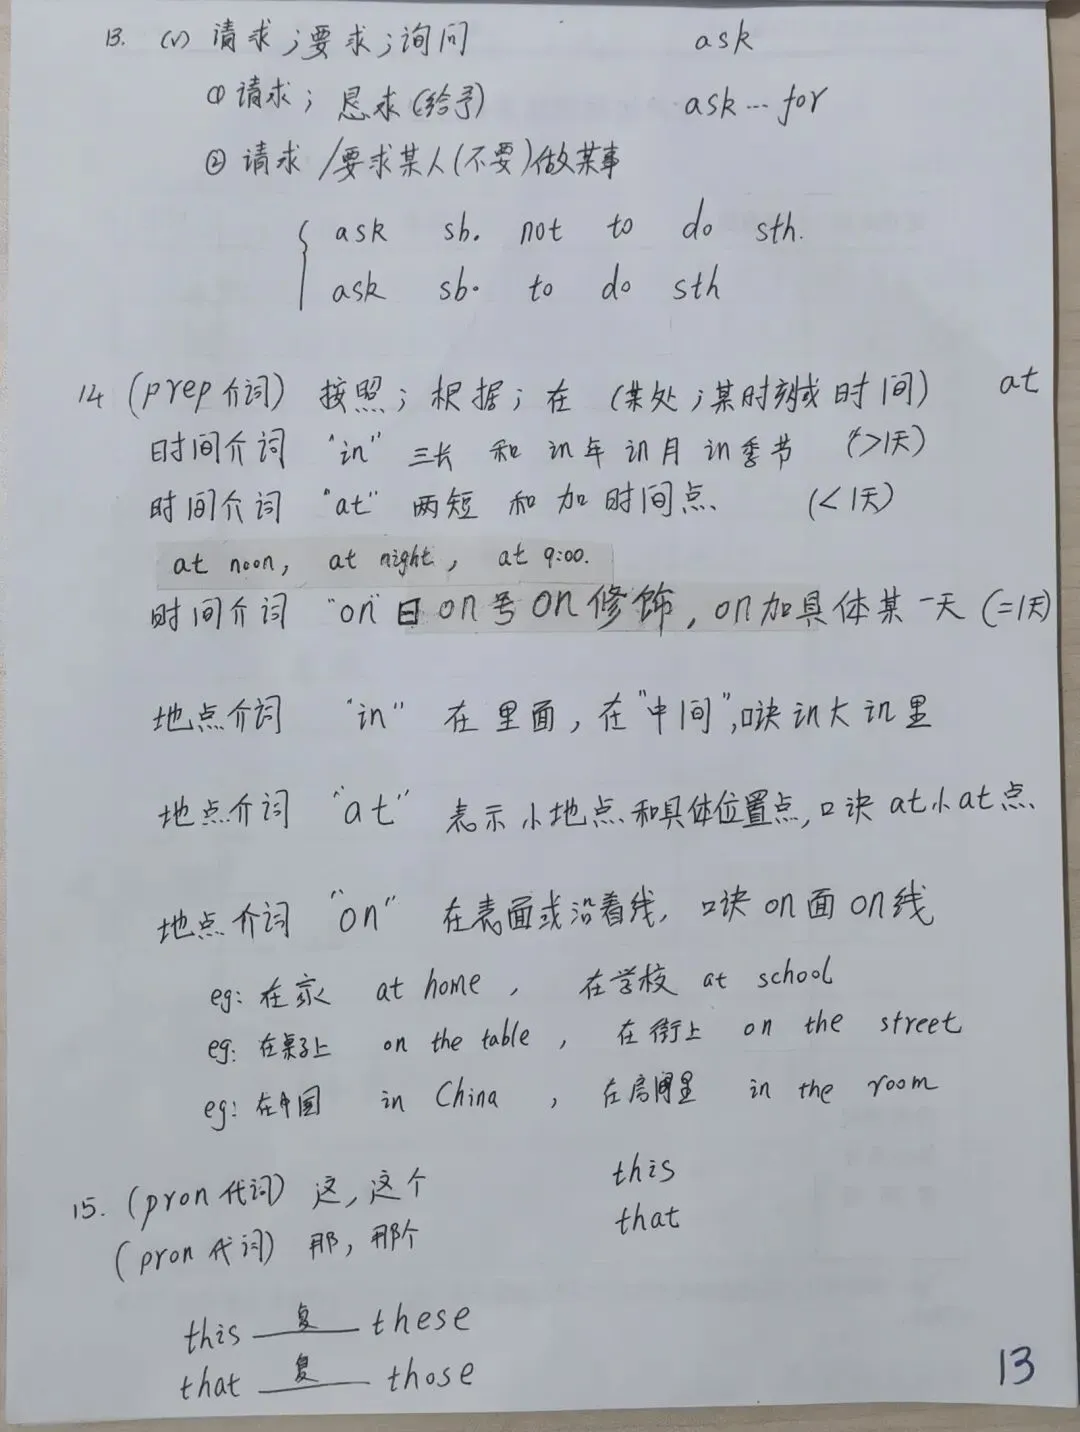 13. (v) 请求;要求;询问 ask
① 请求; 恳求(给予) ask … for
② 请求/要求某人(不要)做某事
ask sb. not to do sth.
ask sb. to do sth
14 (prep 介词) 按照; 根据; 在 (某处;某时刻或时间) at
时间介词 "in" 三长 和 in年 in月 in季节 (>1天)
时间介词 "at" 两短 和 加 时间点 (<1天)
at noon, at night, at 9:00.
时间介词 "on" 日 on 号 on 修饰, on加具体某一天 (=1天)
地点介词 "in" 在里面, 在"中间",口诀 in大 in里
地点介词 "at" 表示小地点和具体位置点,口诀 at小at点
地点介词 "on" 在表面或沿着线, 口诀 on面on线
eg: 在家 at home , 在学校 at school
eg: 在桌子上 on the table , 在街上 on the street
eg: 在中国 in China , 在房间里 in the room
15. (pron 代词) 这, 这个 this
(pron 代词) 那, 那个 that
this 复 these
that 复 those
13